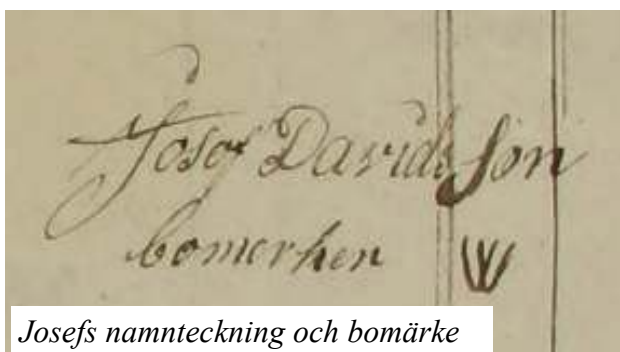 Josef Davidsson
bomerken
Josefs namnteckning och bomärke